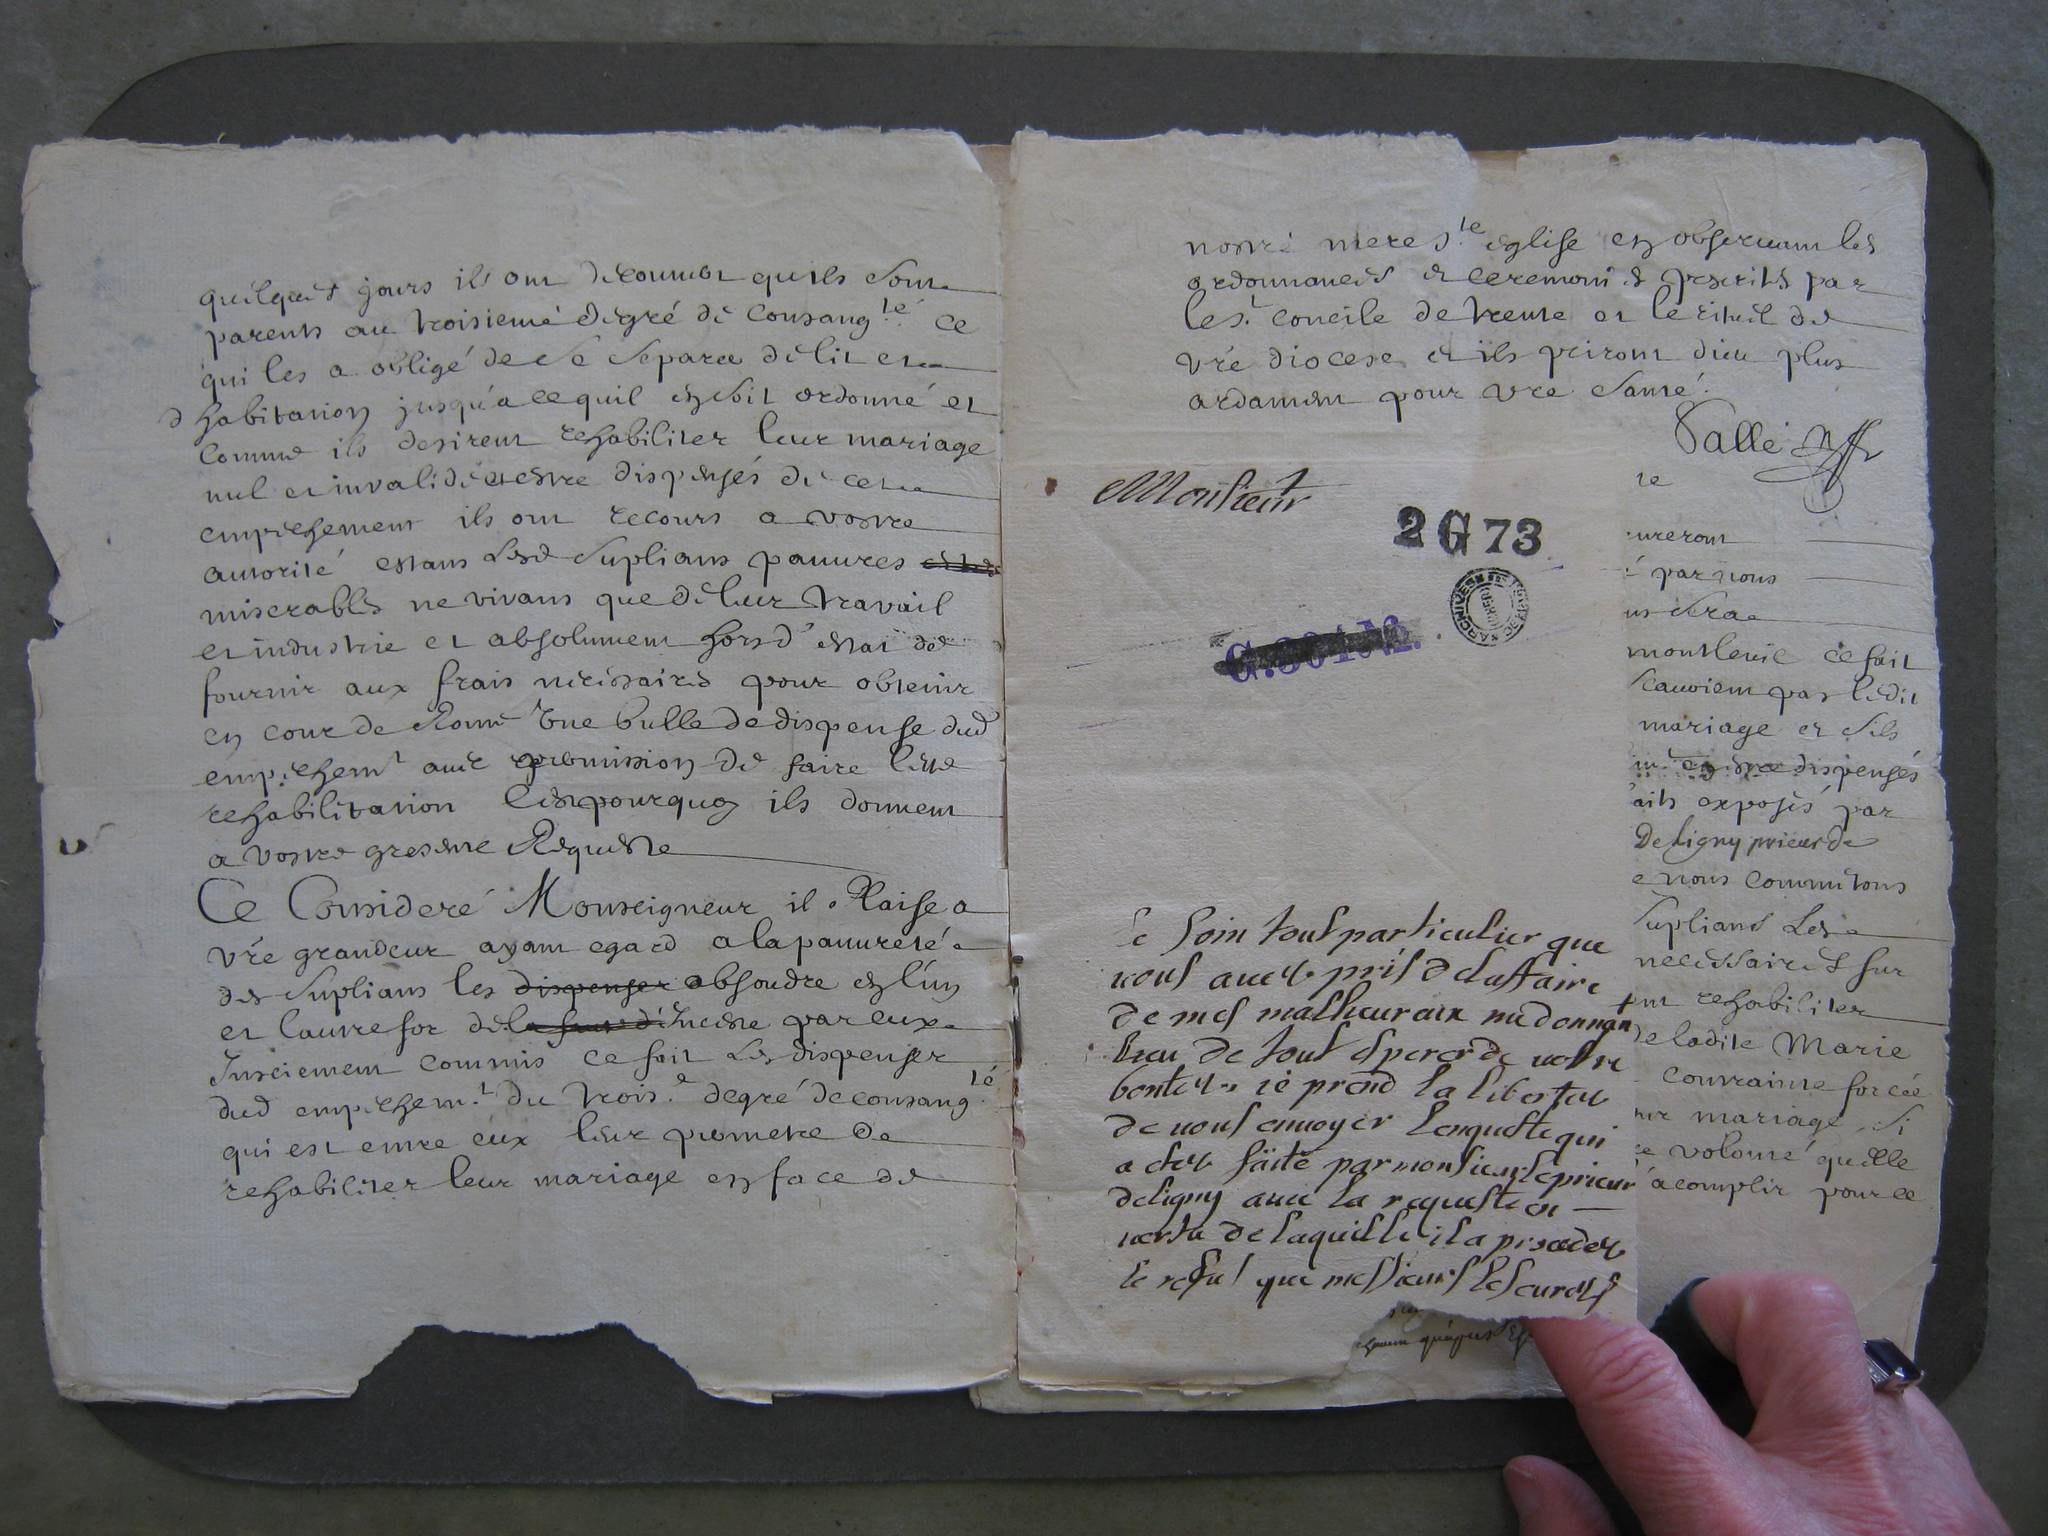 quelques jours ils ont découvert quils sont
parents au troisieme degré de Consang.té ce
qui les a obligé de se separer de lit et
d habitation jusqu'a ce quil en soit ordonné et
Comme ils desirent rehabiliter leur mariage
nul et invalide et estre dispensés de cet
empechement ils ont recours a vostre
autorité estans Lesd Suplians pauvres
miserables ne vivans que de leur travail
et industrie et absolument hors d'estat de
fournir aux frais necessaires pour obtenir
en cour de Rome Une bulle de dispense dud
empechemt avec permission de faire leur
rehabilitation Cest pourquoy ils donnent
a vostre gr Requeste
Ce Consideré Monseigneur il Plaise a
vre grandeur ayant egard a la pauvreté
des Suplians les dispenser absoudre en lun
et lautre for de inceste par eux
Insciemment commis ce fait Les dispenser
dud empechem.t du trois.e degré de consang.té
qui est entre eux leur permetre de
rehabiliter leur mariage en face de
nostre mere S.te eglise en observant les
ordonnances et ceremonies prescrits par
le S.t Concile de trente et le rituel de
vre diocese et ils priront dieu plus
ardament pour vre Santé.
Vallé
Monsieur
2 G 73
G.301.M.
le soin tout particulier que
vous avez pris de laffaire
de mes malheuraux me donnant
lieu de tout esperer de votre
bontez ie prend la libertez
de vous envoyer lenqueste qui
a etez faite par monsieur le prieur
de ligny avec la requeste en
vertu de laquelle il a procedez
le refus que messieurs les curets
re
ureront
é par nous
us sera
montlevic ce fait
scavoient pas ledit
mariage et sils
dispensés
aits exposés par
De Ligny prieur de
e nous commetons
Suplians Les
necessaires sur
ent rehabiliter
de ladite Marie
contrainte forcée
leur mariage, si
ce volonté quelle
acomplir pour ce